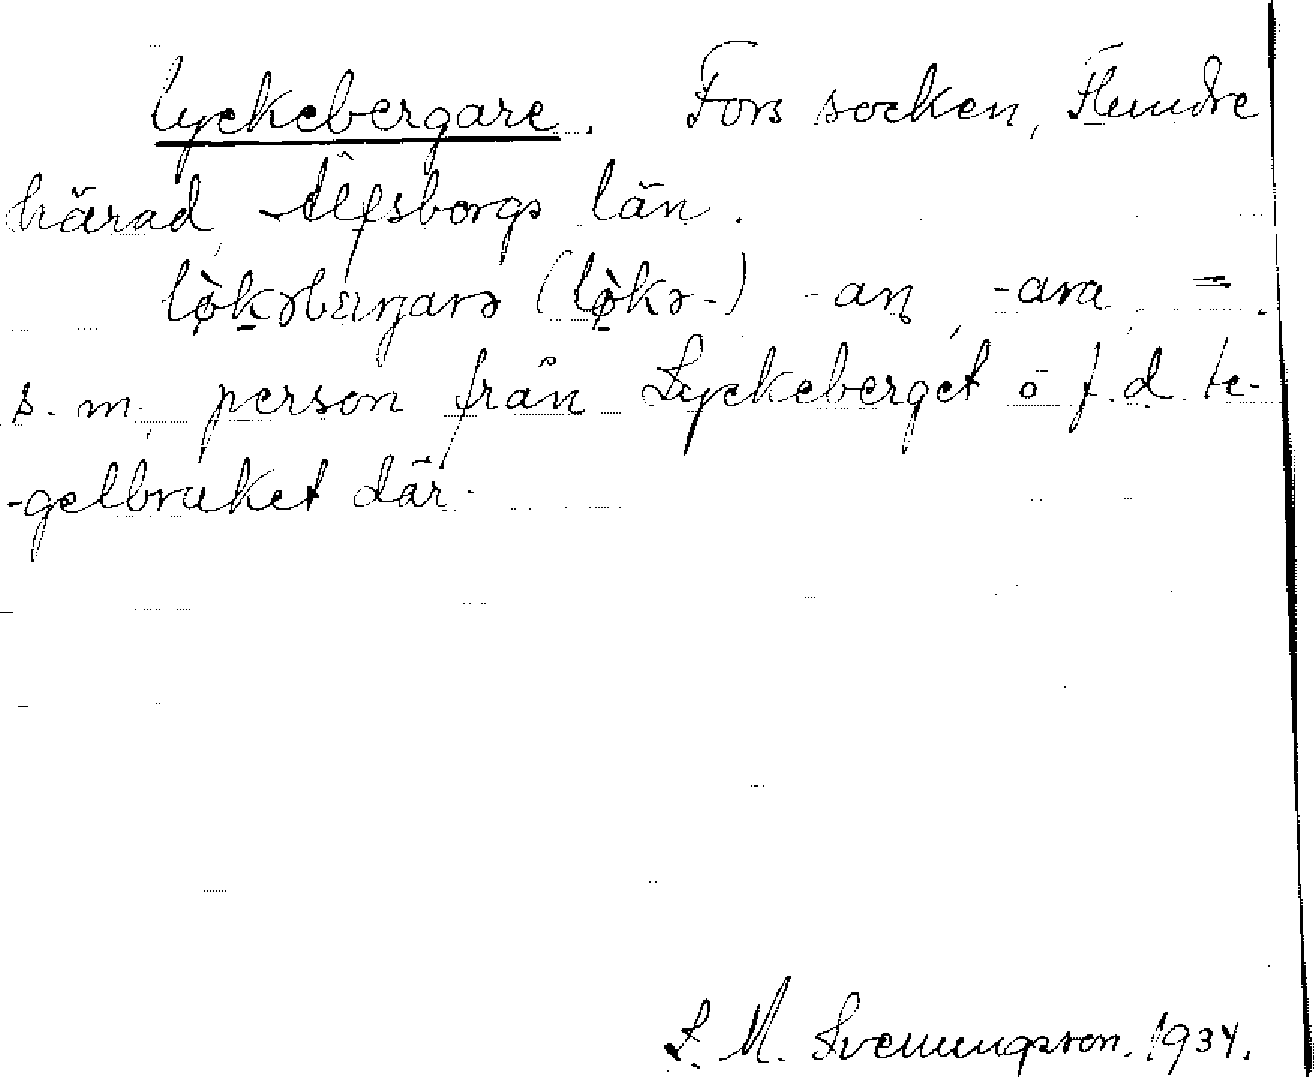 lyckebergare. Fors socken, Flundre
härad, Älfsborgs län.
lø̀kəbærjarə (lø̀kə-) -aɳ, -ara, =.
s. m. person från Lyckeberget o f. d. te-
-gelbruket där.
L. M. Svenungsson. 1934.